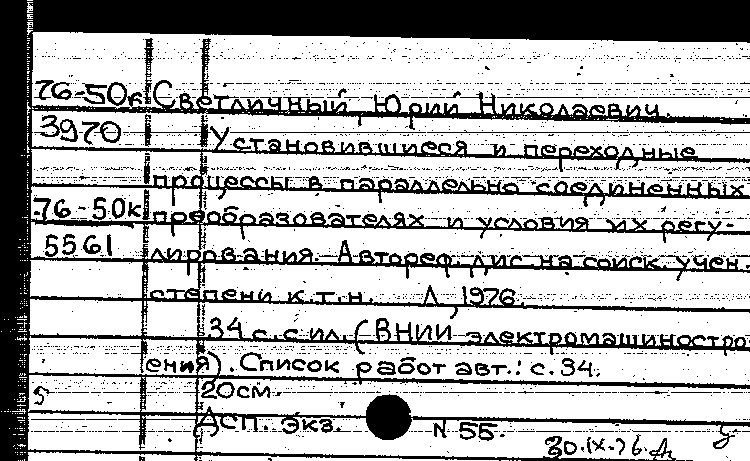 76-50к Светличный, Юрий Николаевич.
3970 Установившиеся и переходные
процессы в параллельно соединенных
76-50к преобразователях и условия их регу-
5561 лирования. Автореф. дис на соиск. учен.
степени к.т.н. Л, 1976.
34 с. с ил. (ВНИИ электромашиностро-
ения). Список работ авт.: с. 34.
20см.
Асп. экз. N 55.
30.IX.76.